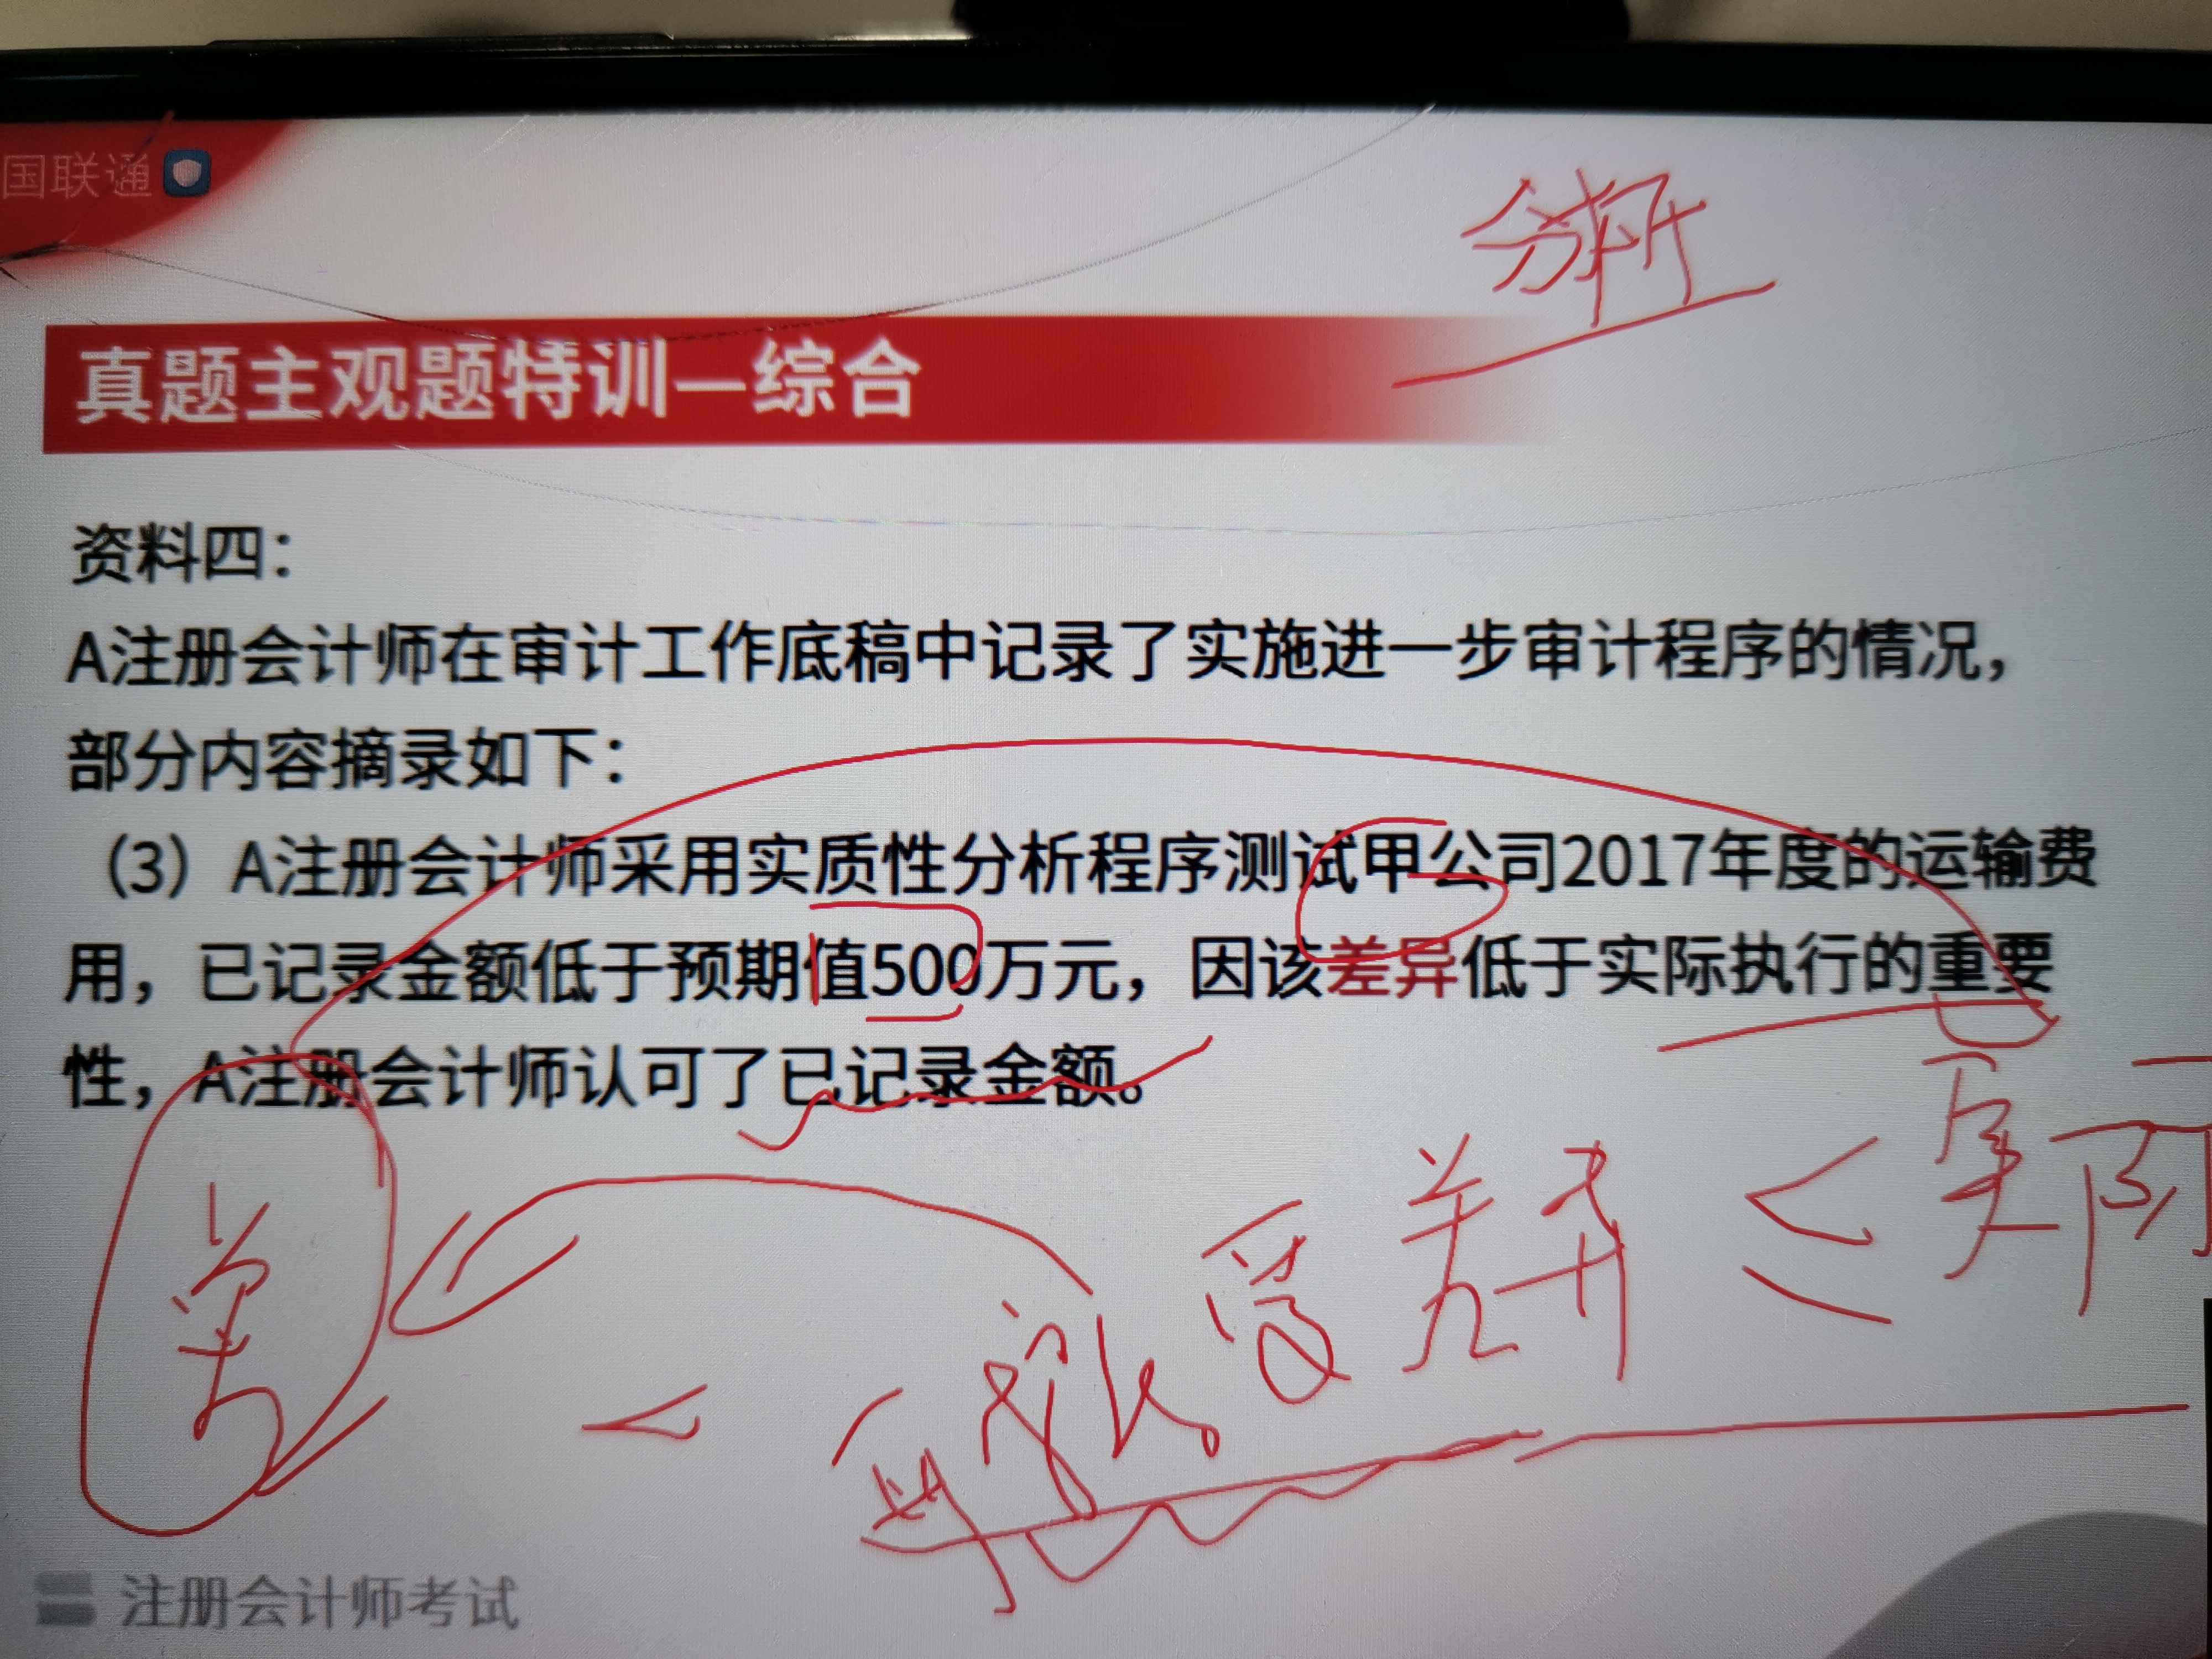 国联通
分析
真题主观题特训—综合
资料四：
A注册会计师在审计工作底稿中记录了实施进一步审计程序的情况，
部分内容摘录如下：
（3）A注册会计师采用实质性分析程序测试甲公司2017年度的运输费
用，已记录金额低于预期值500万元，因该差异低于实际执行的重要
性，A注册会计师认可了已记录金额。
差异 < 实际
可接受
注册会计师考试